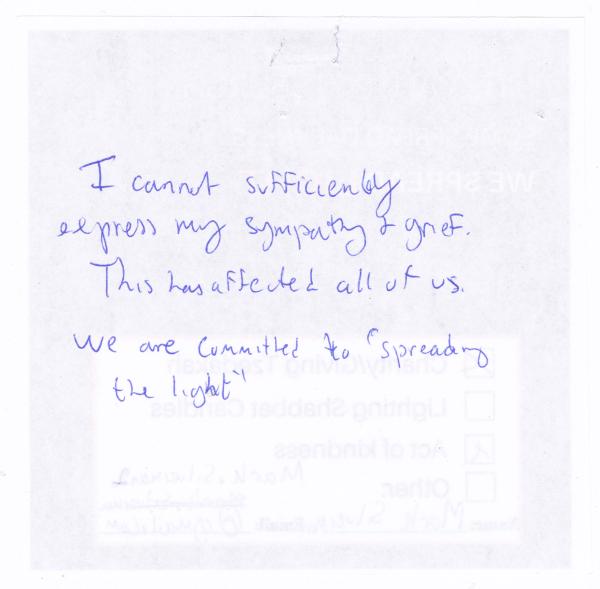 I cannot sufficiently
express my sympathy & grief.
This has affected all of us.
We are committed to "spreading
the light"
WE SPREAD
Charity/Giving Tzedakah
Lighting Shabbat Candles
Act of kindness
Other:
Name: Mark Email: